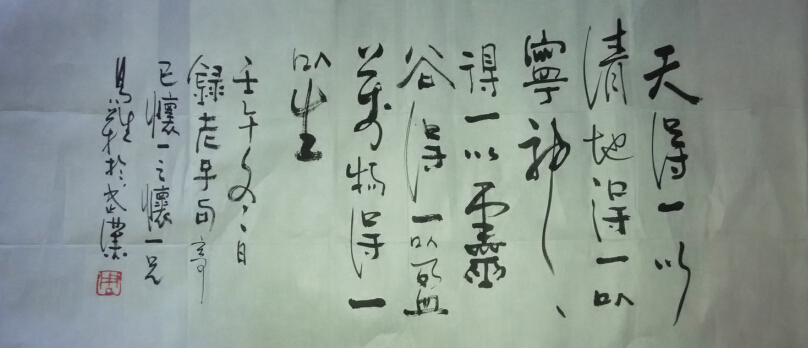 天得一以
清地得一以
寧神
得一以靈
谷得一以盈
萬物得一
以生
壬午月
錄老子句寄
懷一之懷一兄
於武漢